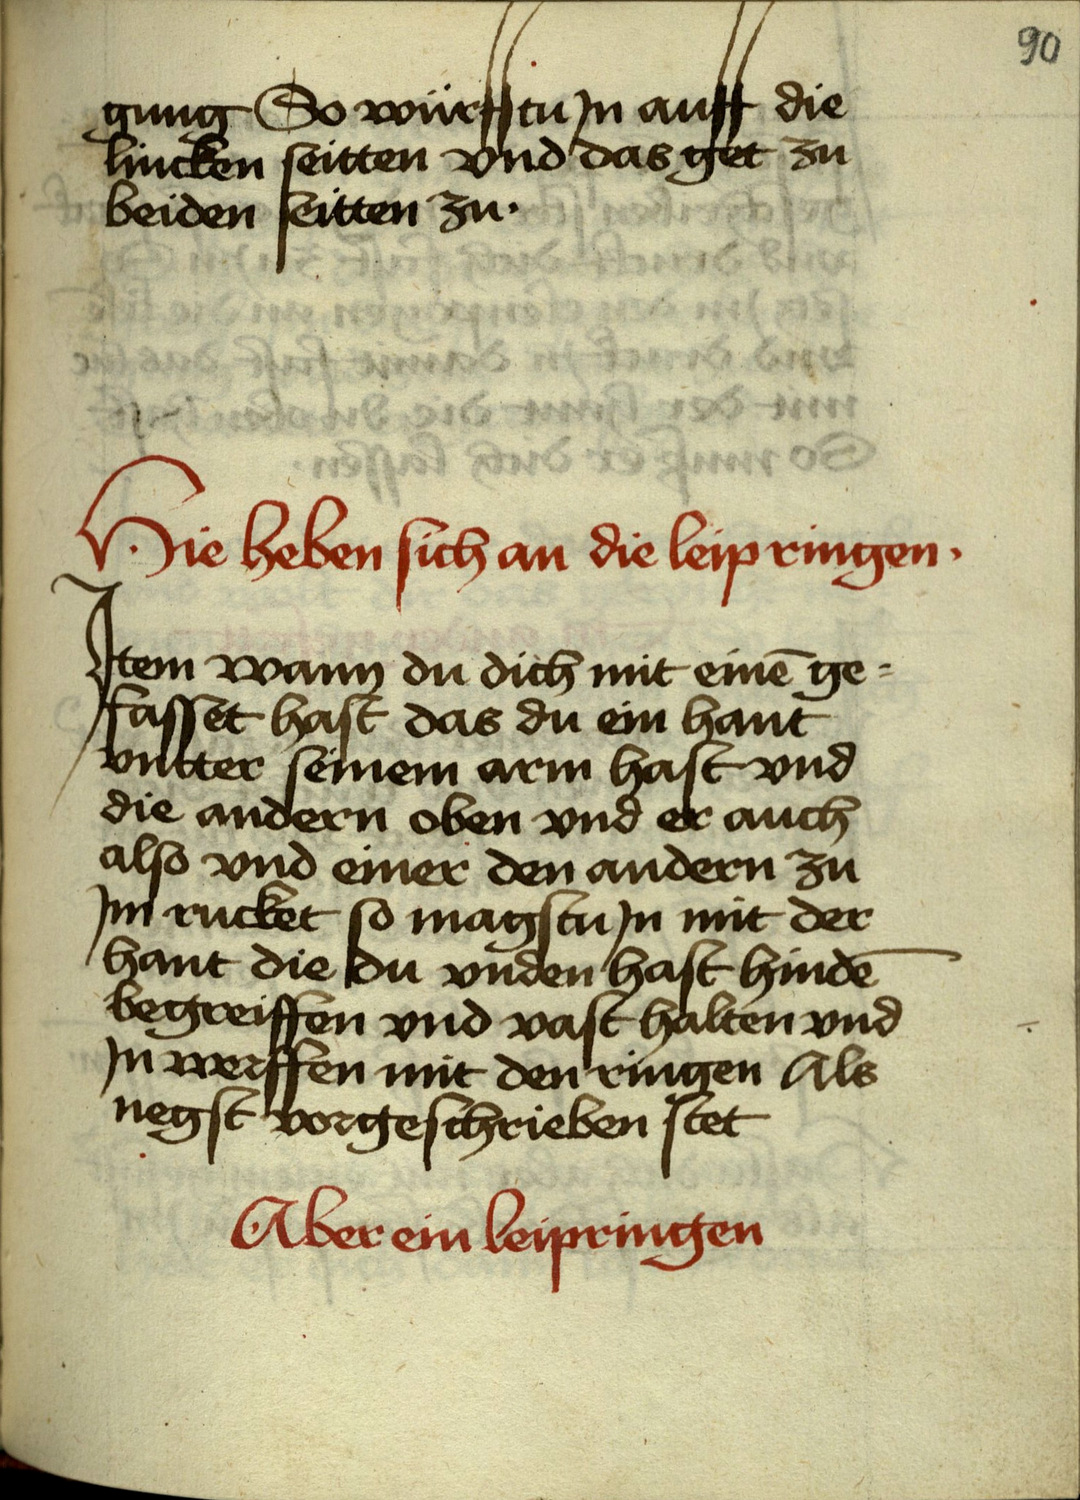 90
gung So würfstu Jn auff die
lincken seitten vnd das get zu
beiden seitten zu.
Hie heben sich an die leip ringen.
Jtem wann du dich mit einē ge=
fasset hast das du ein hant
vntter seinem arm hast vnd
die andern oben vnd er auch
also vnd einer den andern zu
Jm rucket so magstu Jn mit der
hant die du vnden hast hindē
begreiffen vnd vast halten vnd
Jn werffen mit den ringen Als
negst vorgeschrieben stet
Aber ein leipringen